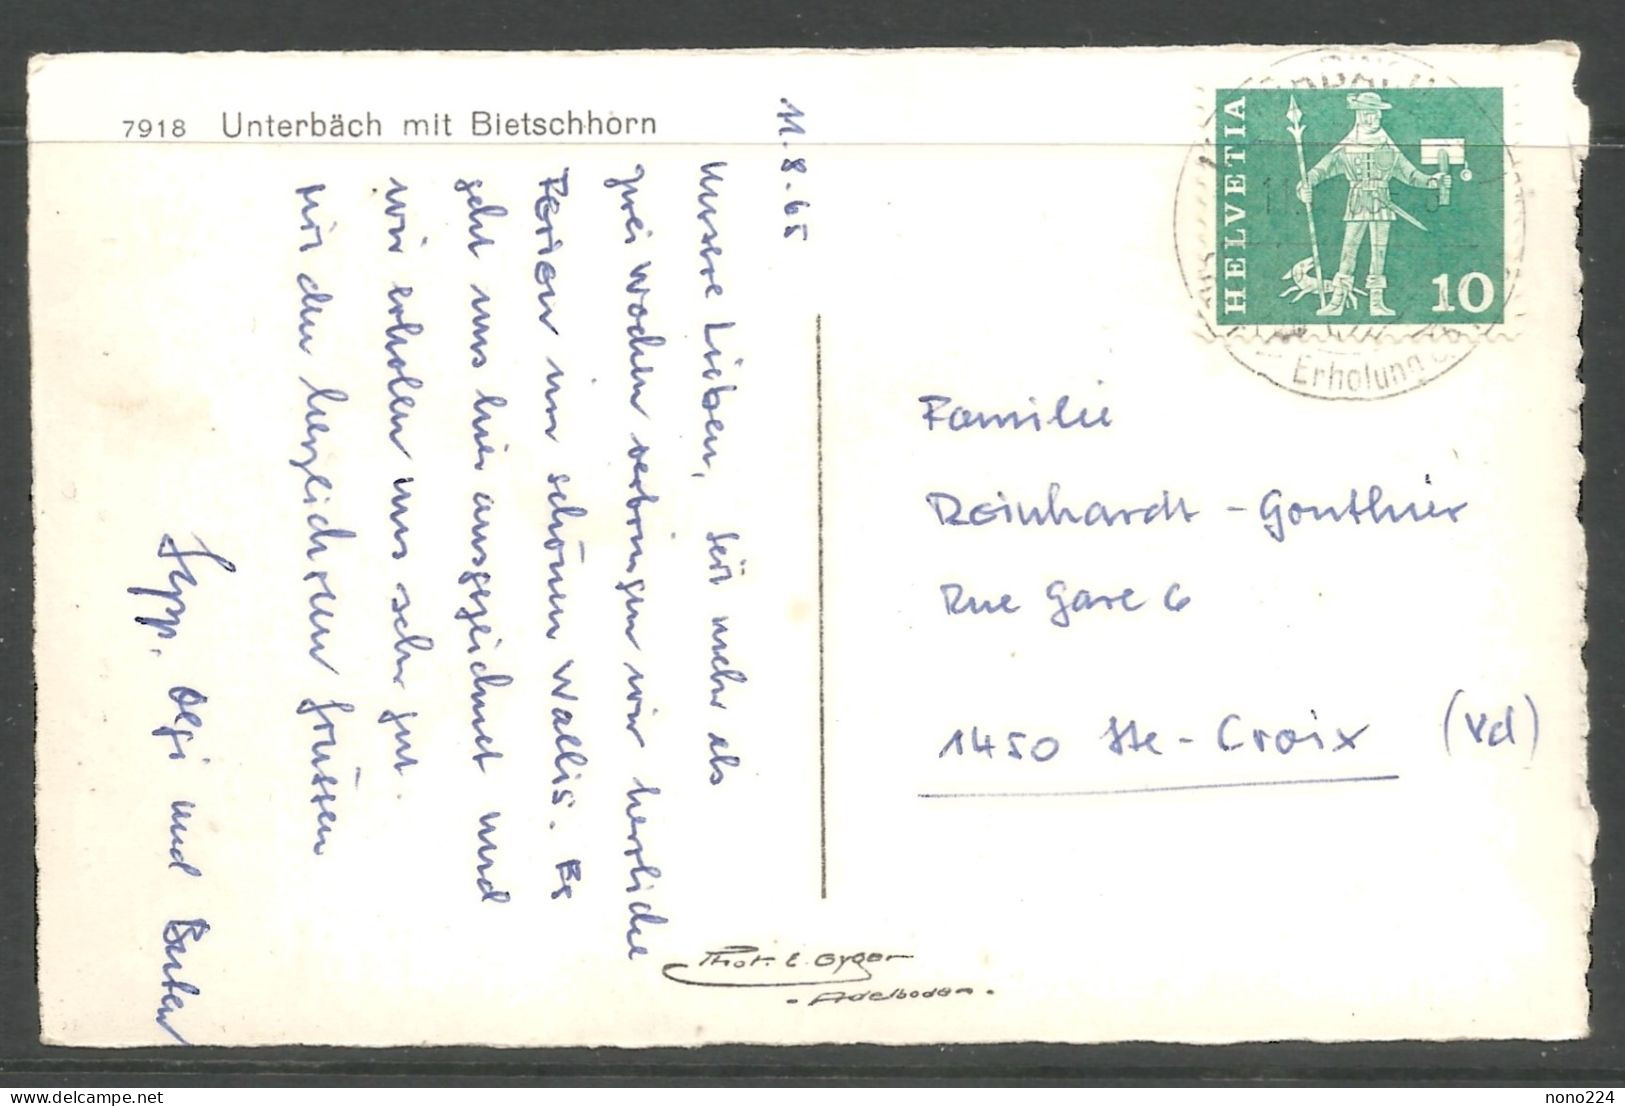 7918 Unterbäch mit Bietschhorn
11.8.65
Unsere Lieben, seit mehr als
zwei Wochen verbringen wir herrliche
Ferien im schönen Wallis. Es
geht uns hier ausgezeichnet und
wir erholen uns sehr gut.
Mit den herzlichsten Grüssen
Sepp, Olgi und
HELVETIA
10
Erholung
Familie
Reinhardt-Gonthier
Rue Gare 6
1450 Ste-Croix (Vd)
Phot. E. Gyger
- Adelboden -
delcampe.net
nono224